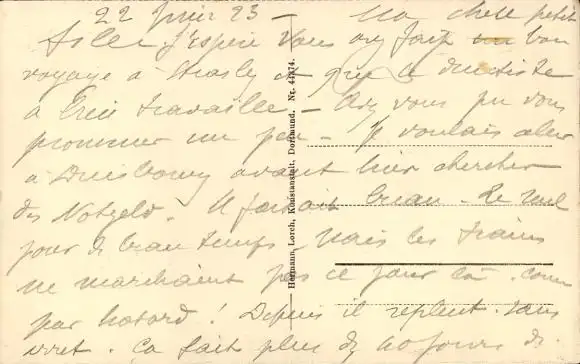 22 Juin 23 - Ma chère petite
fille J'espère vous avez fait un bon
voyage à Strasbg et que le dentiste
a bien travaillé. - Avez vous pu vous
promener un peu - Je voulais aller
à Duisbourg avant hier chercher
du Notgeld. Il faisait beau. Le seul
jour de beau temps - Mais les trains
ne marchaient pas ce jour là. comme
par hasard! Depuis il repleut. sans
arret. Ca fait plus de 40 jours de
Hermann Lorch, Kunstanstalt, Dortmund. Nr. 44374.